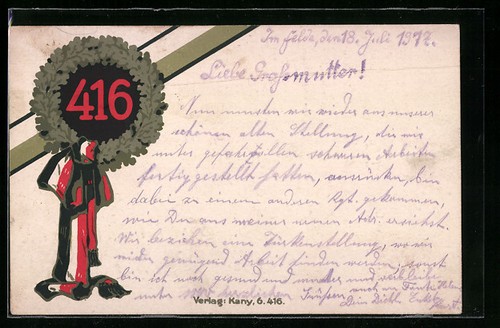 416
Im Felde, den 18. Juli 1917.
Liebe Großmutter!
Nun mussten wir wieder aus unserer
schönen alten Stellung, die wir
unter gefahrvollen schweren Arbeiten
fertiggestellt hatten, ausrücken, bin
dabei zu einem anderen Rgt. gekommen,
wie Du aus meiner neuen Adr. ersiehst.
Wir beziehen eine Stellung, wo wir
wieder genügend Arbeit finden werden, sonst
bin ich noch gesund und munter und verbleibe
unter herzlichen Grüßen auch an Tante
Dein Enkel
Verlag: Kany, 6. 416.